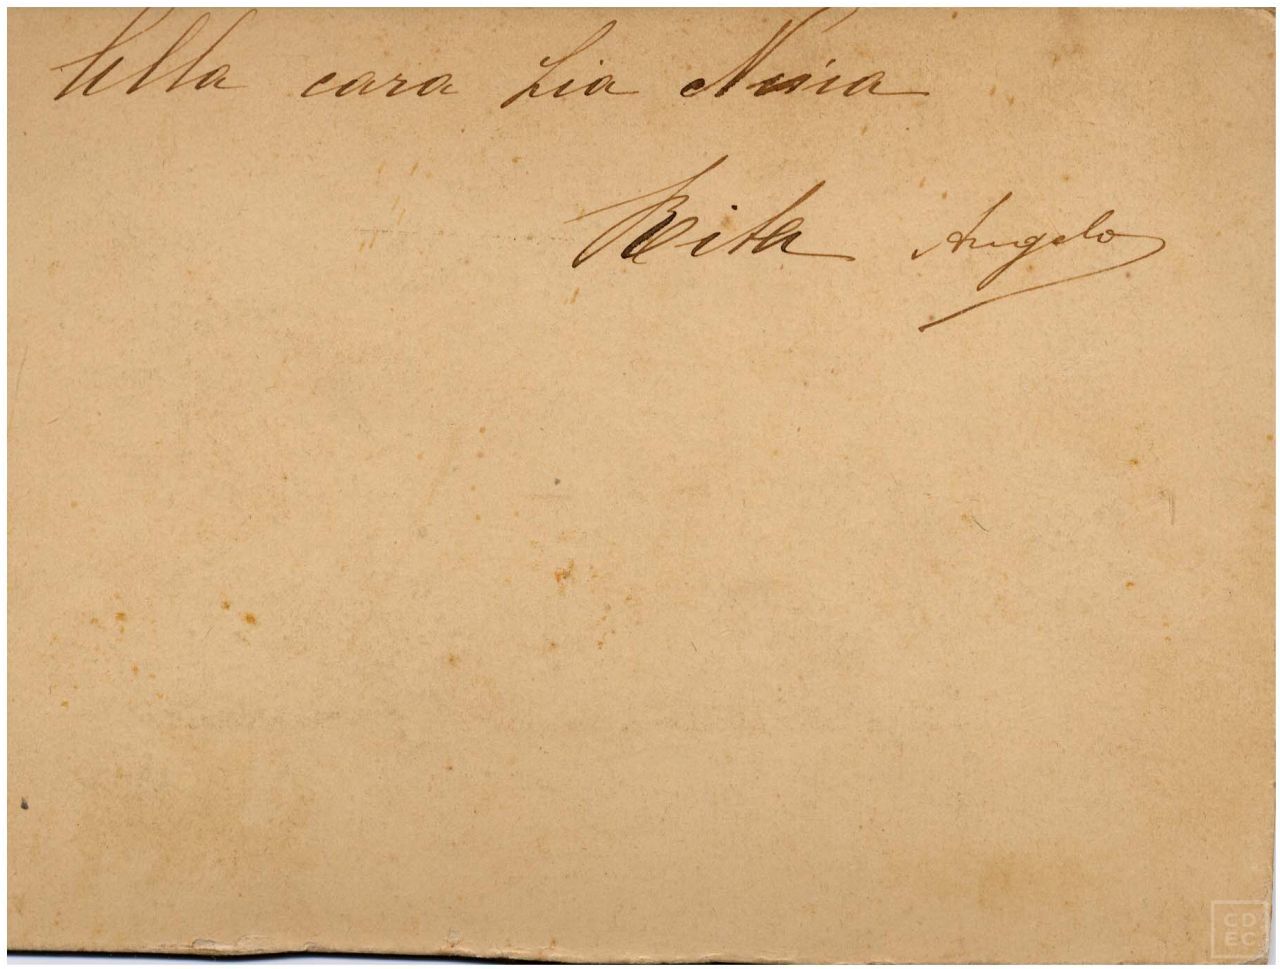 Alla cara Zia Nina
Rita Angelo
CD
EC